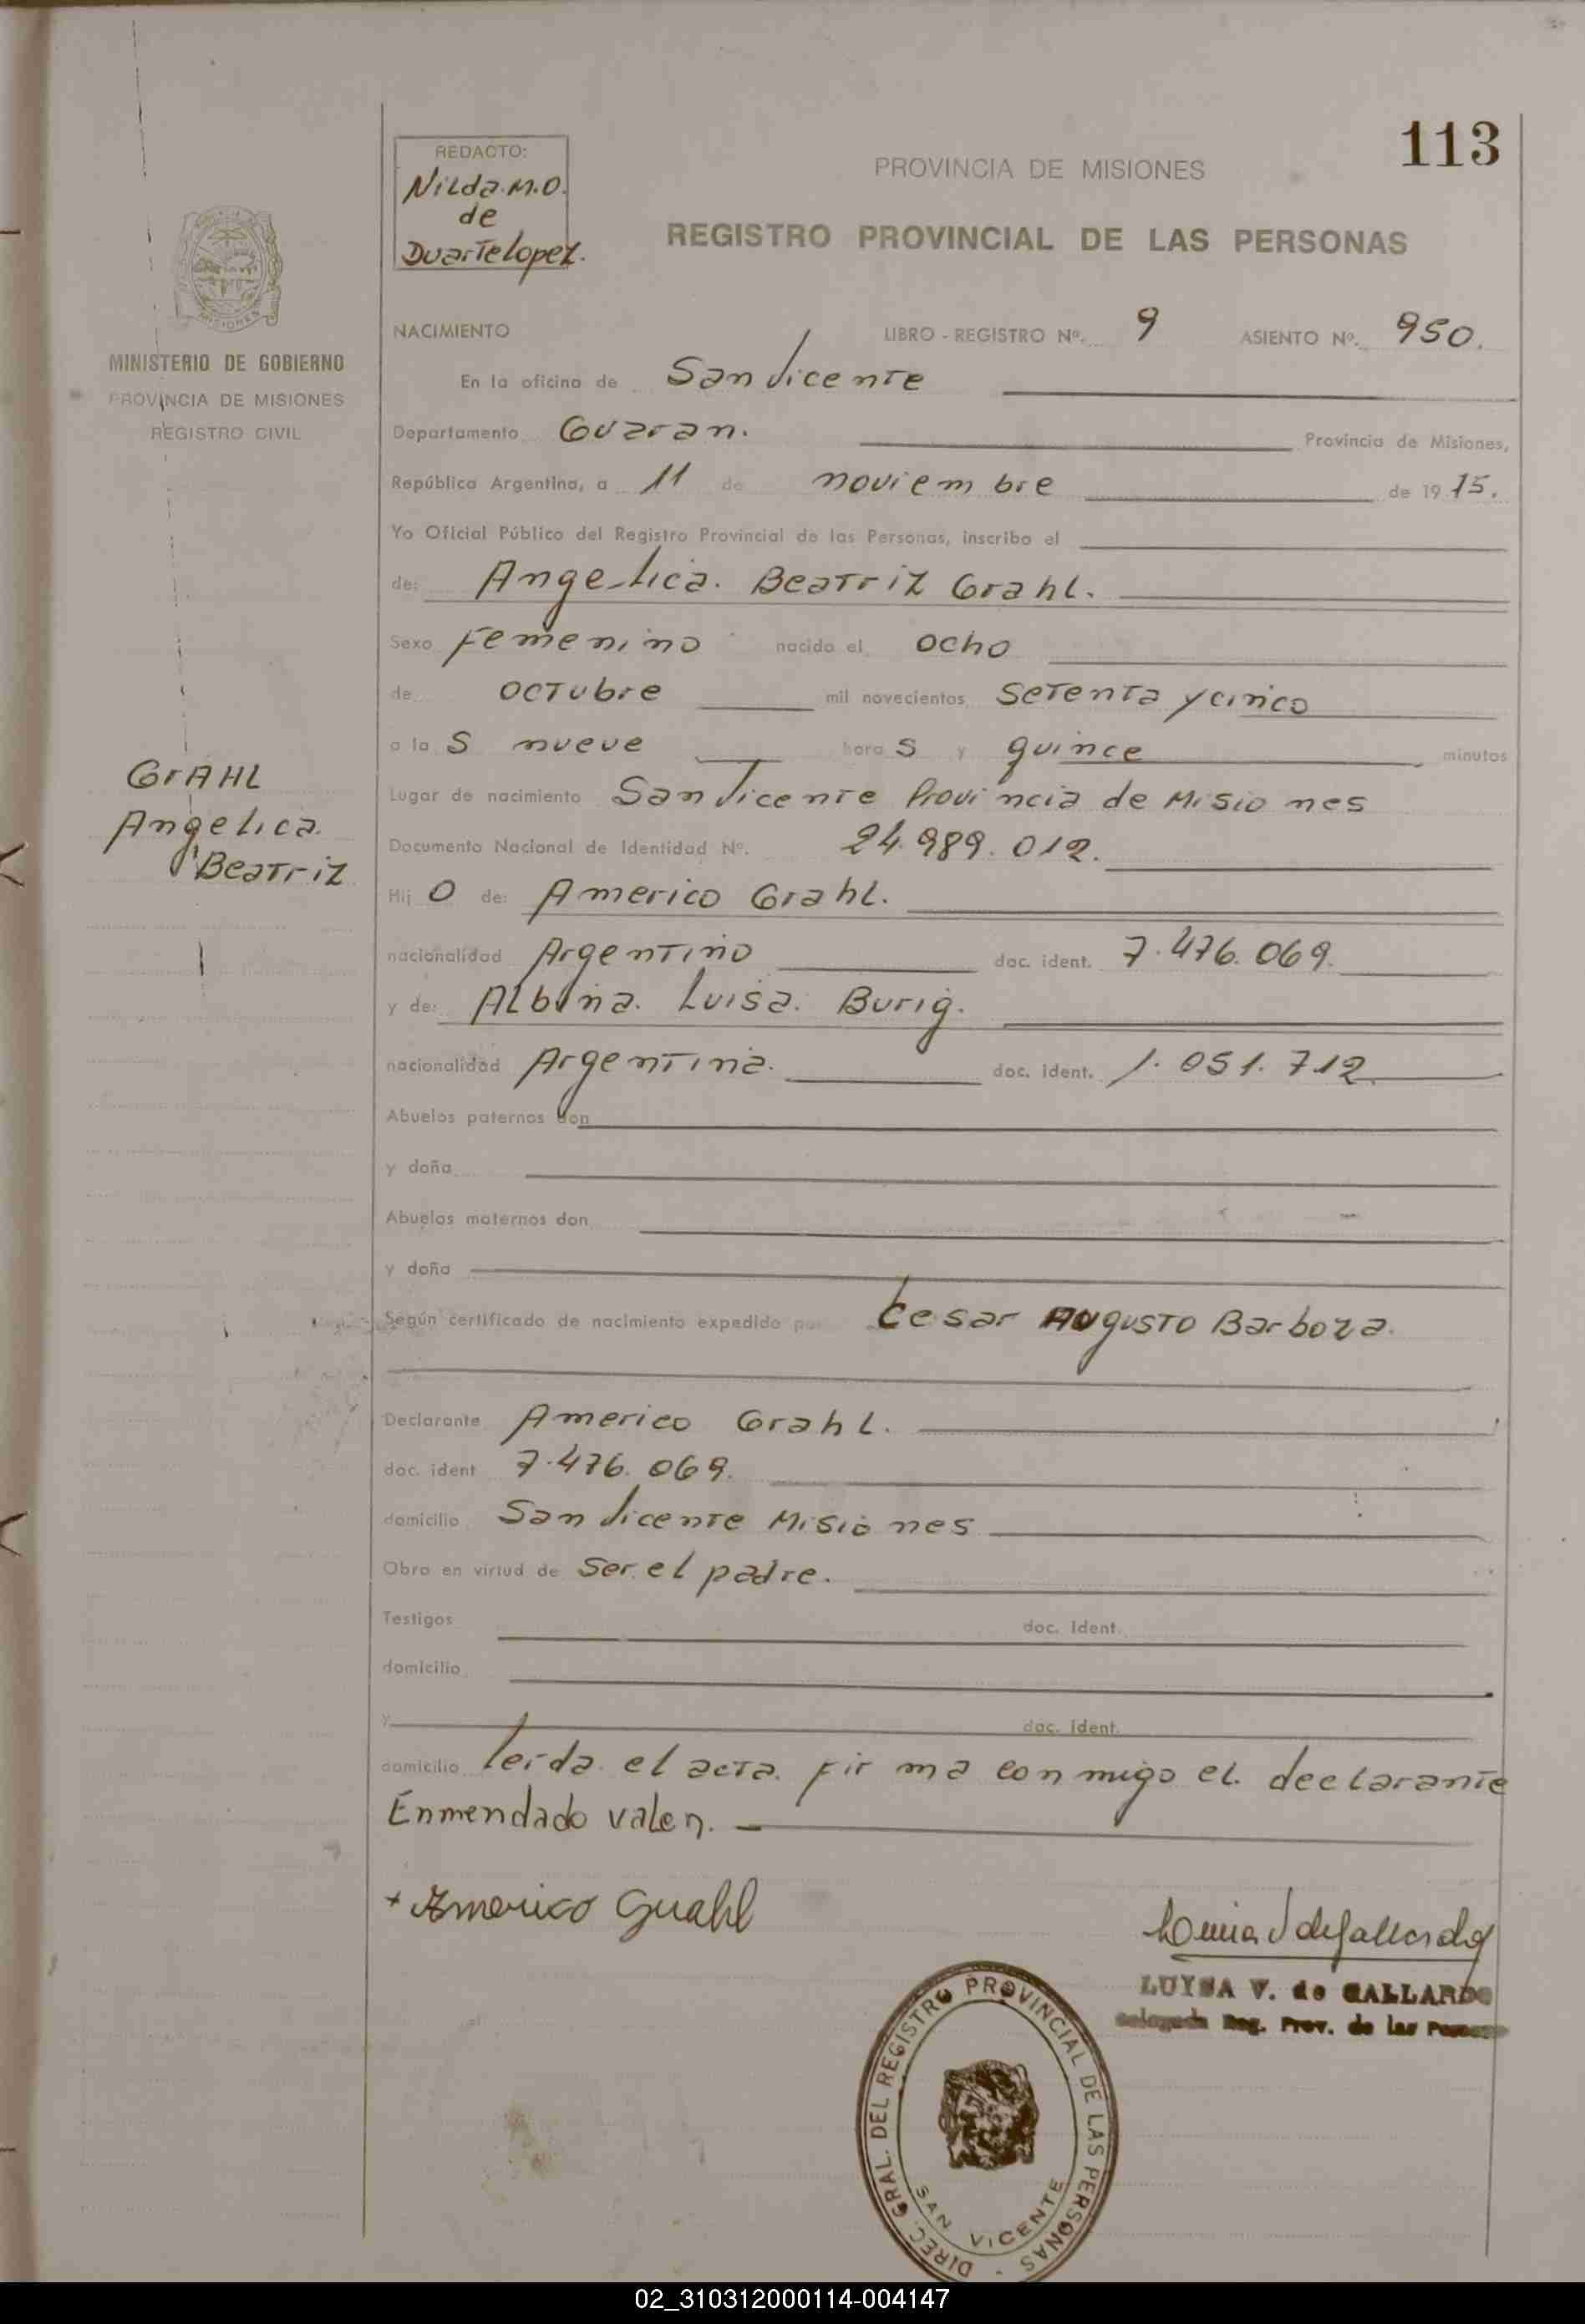 113
REDACTO:
Nilda.M.O.
de
Duarte Lopez.
PROVINCIA DE MISIONES
REGISTRO PROVINCIAL DE LAS PERSONAS
MISIONES
MINISTERIO DE GOBIERNO
PROVINCIA DE MISIONES
REGISTRO CIVIL
NACIMIENTO LIBRO - REGISTRO Nº. 9 ASIENTO Nº. 950.
En la oficina de San Vicente
Departamento Guaran. Provincia de Misiones,
República Argentina, a 11 de noviembre de 19 75.
Yo Oficial Público del Registro Provincial de las Personas, inscribo el
de: Angelica. Beatriz Grahl.
Sexo Femenino nacido el ocho
de octubre mil novecientos setenta y cinco
a la s nueve hora s y quince minutos
GrAHL
Angelica.
Beatriz
Lugar de nacimiento San Vicente Provincia de Misiones
Documento Nacional de Identidad Nº. 24.989.012.
Hij o de: Americo Grahl.
nacionalidad Argentino doc. ident. 7.476.069.
y de: Albina. Luisa. Burig.
nacionalidad Argentina. doc. ident. 1.051.712
Abuelos paternos don
y doña
Abuelos maternos don
y doña
Según certificado de nacimiento expedido por Cesar Augusto Barboza.
Declarante Americo Grahl.
doc. ident 7.476.069.
domicilio San Vicente Misiones
Obra en virtud de Ser el padre.
Testigos doc. ident.
domicilio
y doc. ident.
domicilio leida el acta. firma conmigo el declarante
Enmendado valen.
+ Americo Grahl
LUYSA V. de GALLARDO
Delegada Reg. Prov. de las Personas
DIREC. GRAL. DEL REGISTRO PROVINCIAL DE LAS PERSONAS
SAN VICENTE
02_310312000114-004147